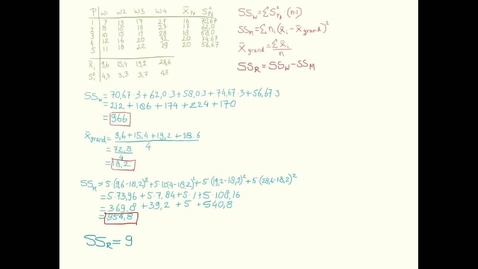 P w1 w2 w3 w4 x̄N S²N
1 7 13 19 27 16 70,67
2 8 10 18 27 17 62,0
12 16 20 32 20 74,67
5 11 18 22 29 20 56,67
x̄i 9,6 15,4 19,2 28,6
S²i 4,3 3,3 3,7 4,2
SSw = ΣS²N (n-1)
SSM = Σni (x̄i - x̄grand)²
x̄grand = Σx̄i / n
SSR = SSW - SSM
SSw = 70,67·3 + 62,0·3 + 58,0·3 + 74,67·3 + 56,67·3
= 212 + 186 + 174 + 224 + 170
= 966
x̄grand = 9,6 + 15,4 + 19,2 + 28.6
4
= 72,8
4
= 18,2
SSM = 5·(9,6-18,2)² + 5·(15,4-18,2)² + 5·(19,2-18,2)² + 5·(28,6-18,2)²
= 5·73,96 + 5·7,84 + 5·1 + 5·108,16
= 369,8 + 39,2 + 5 + 540,8
= 954,8
SSR = 9